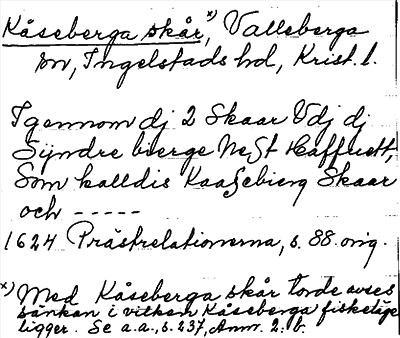 Kåseberga skår,ˣ⁾ Valleberga
sn, Ingelstads hd, Krist. l.
Igennom dj 2 Skaar Vdj dj
Syndre bierge Nest Haffuett,
Som kalldis Kaasebierg Skaar
och -----
1624 Prästrelationerna, s. 88. orig.
x) Med Kåseberga skår torde avses
sänkan i vilken Kåseberga fiskeläge
ligger. Se a.a., s. 237, Anm. 2. b.